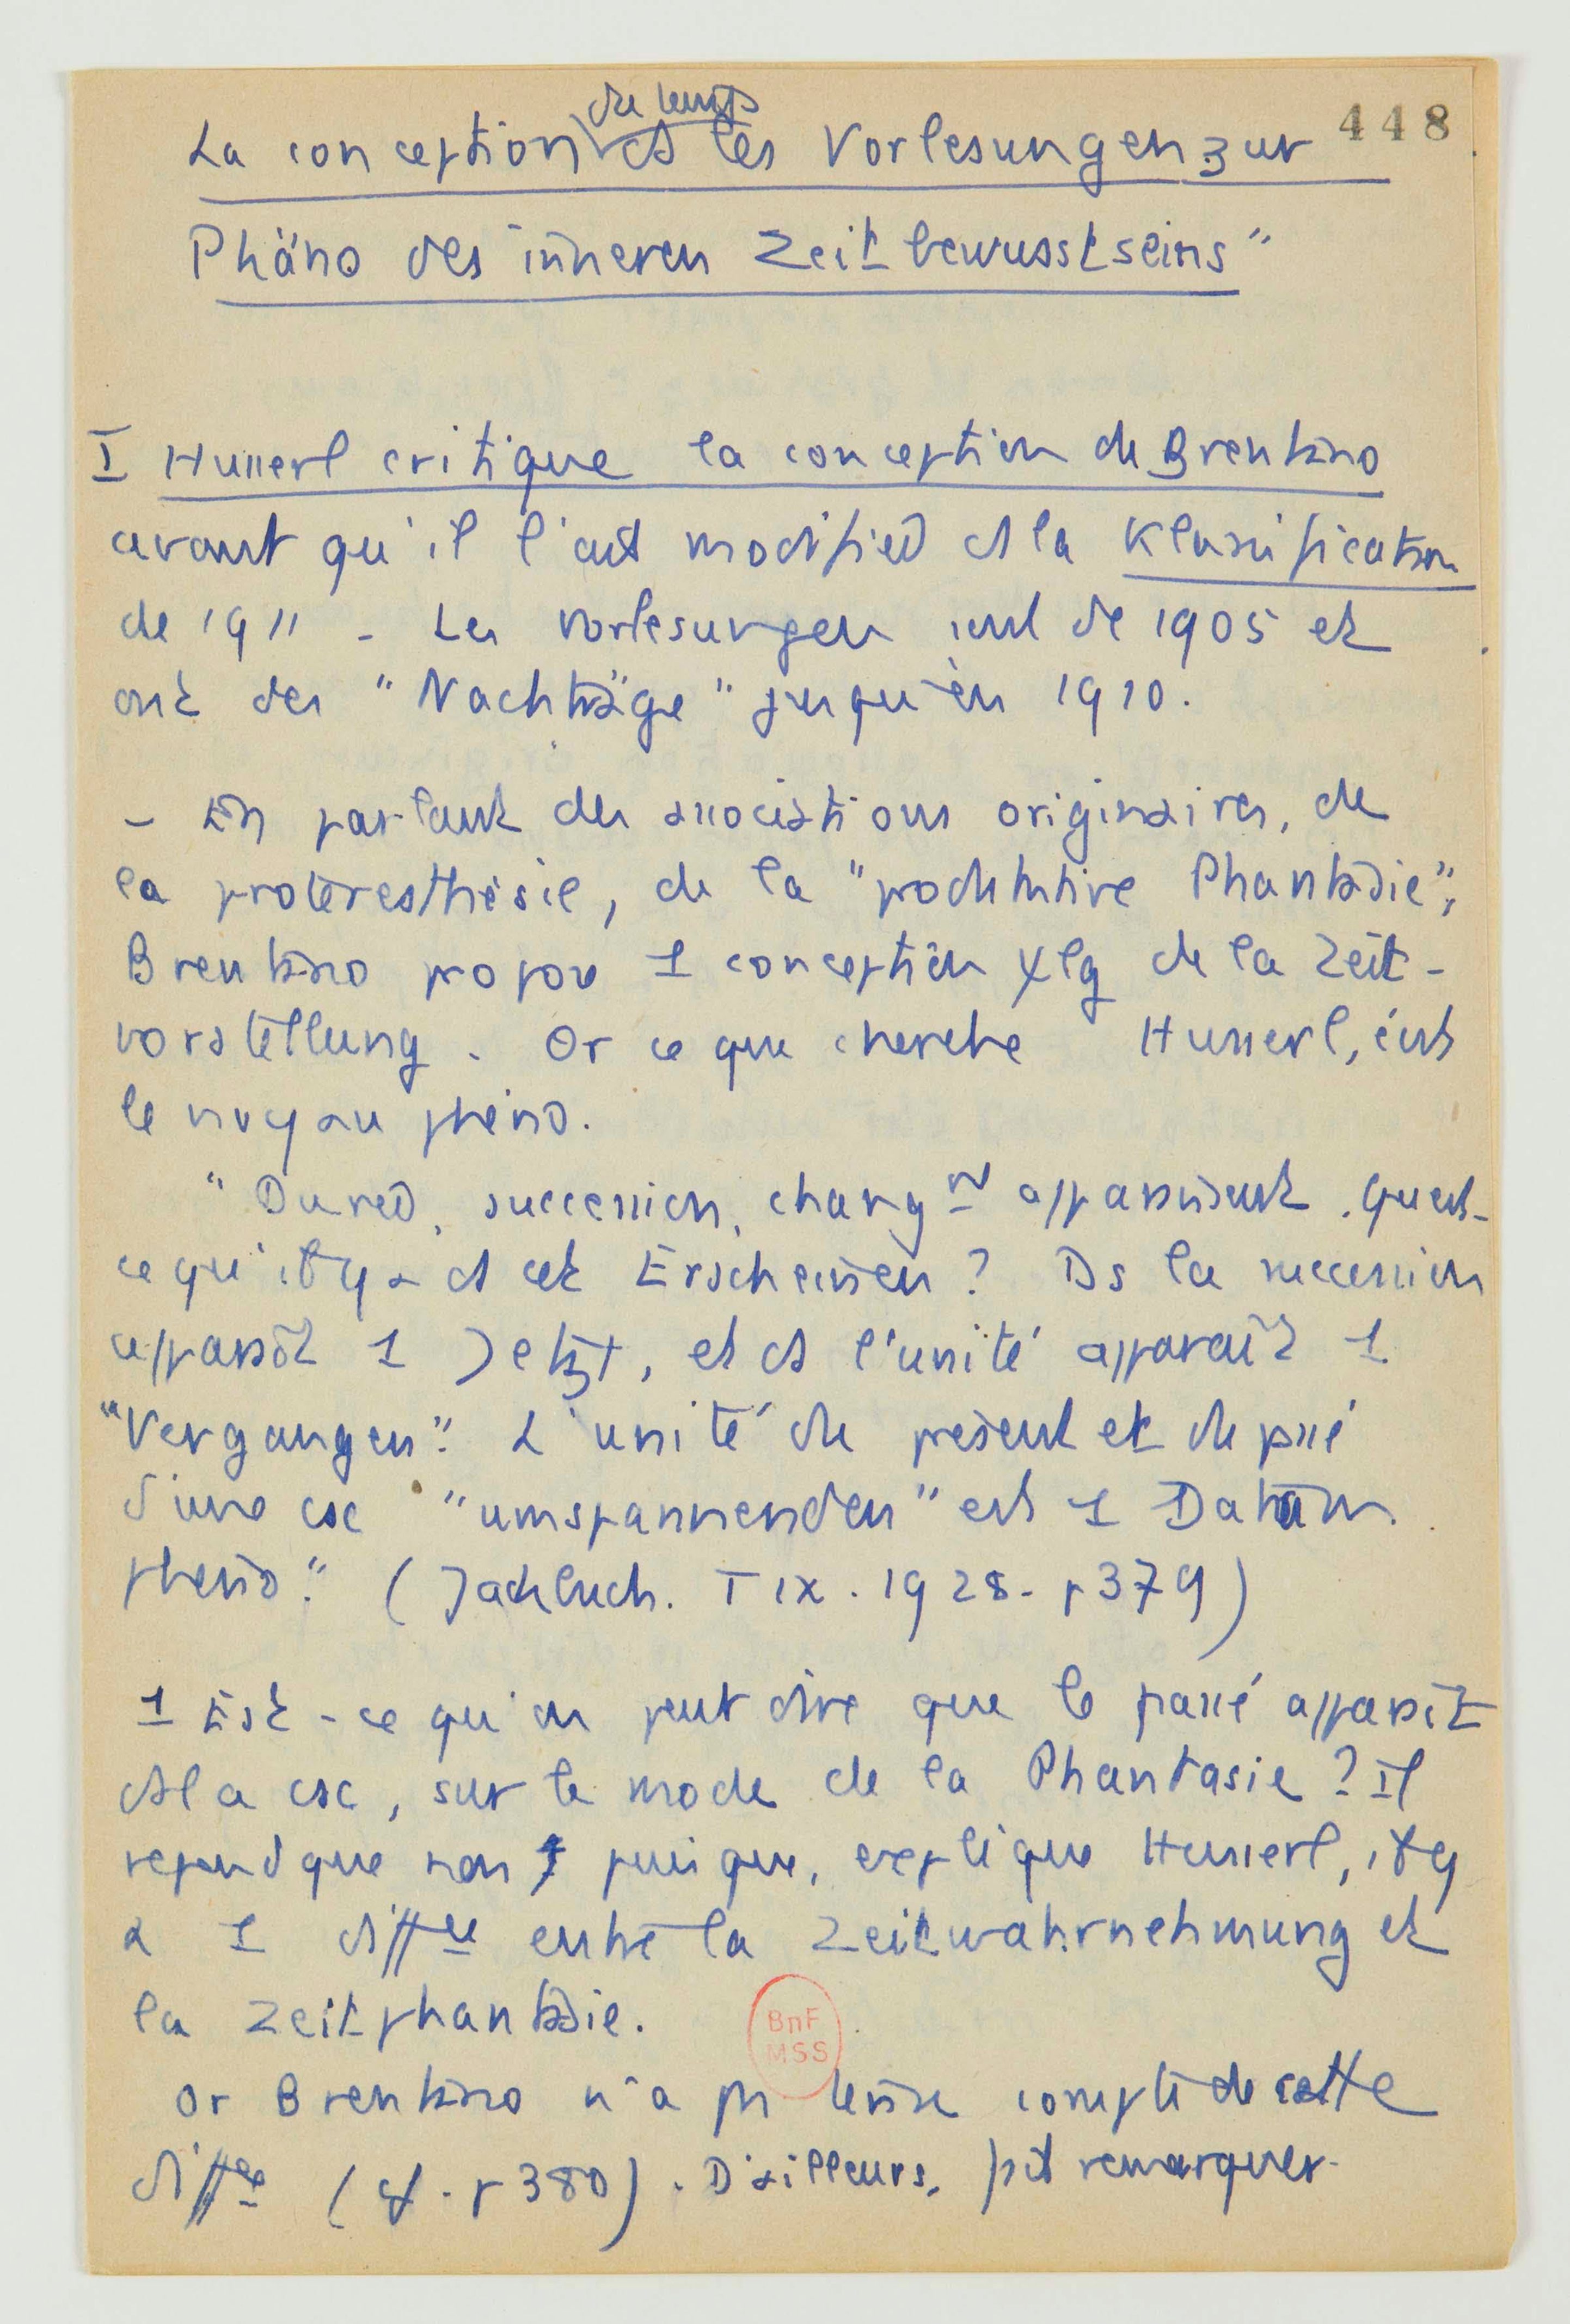 448
La conception du temps ds les Vorlesungen zur
Phäno des inneren Zeitbewusstseins"
I Husserl critique la conception de Brentano
avant qu'il l'ait modifiée ds la Klassification
de 1911 - Les Vorlesungen sont de 1905 et
ont des "Nachträge" jusqu'en 1910.
- En parlant des associations originaires, de
la protéresthésie, de la "produktive Phantasie",
Brentano propose 1 conception ψlg de la Zeit-
vorstellung. Or ce que cherche Husserl, c'est
le noyau phéno.
"Durée, succession, changnt apparaissent. Qu'est-
ce qu'il y a ds cet Erscheinen? Ds la succession
apparaît 1 Jetzt, et ds l'unité apparaît 1
"Vergangen". L'unité du présent et du passé
d'une csc "umspannenden" est 1 Datum
phéno." (Jahrbuch. T IX. 1928 - p 379)
1 Est-ce qu'on peut dire que le passé apparaît
ds la csc, sur le mode de la Phantasie? Il
répond que non puisque, explique Husserl, il y
a 1 diffce entre la Zeitwahrnehmung et
la Zeitphantasie.
BnF
MSS
Or Brentano n'a pu tenir compte de cette
diffce (cf. p 380). D'ailleurs, fait remarquer